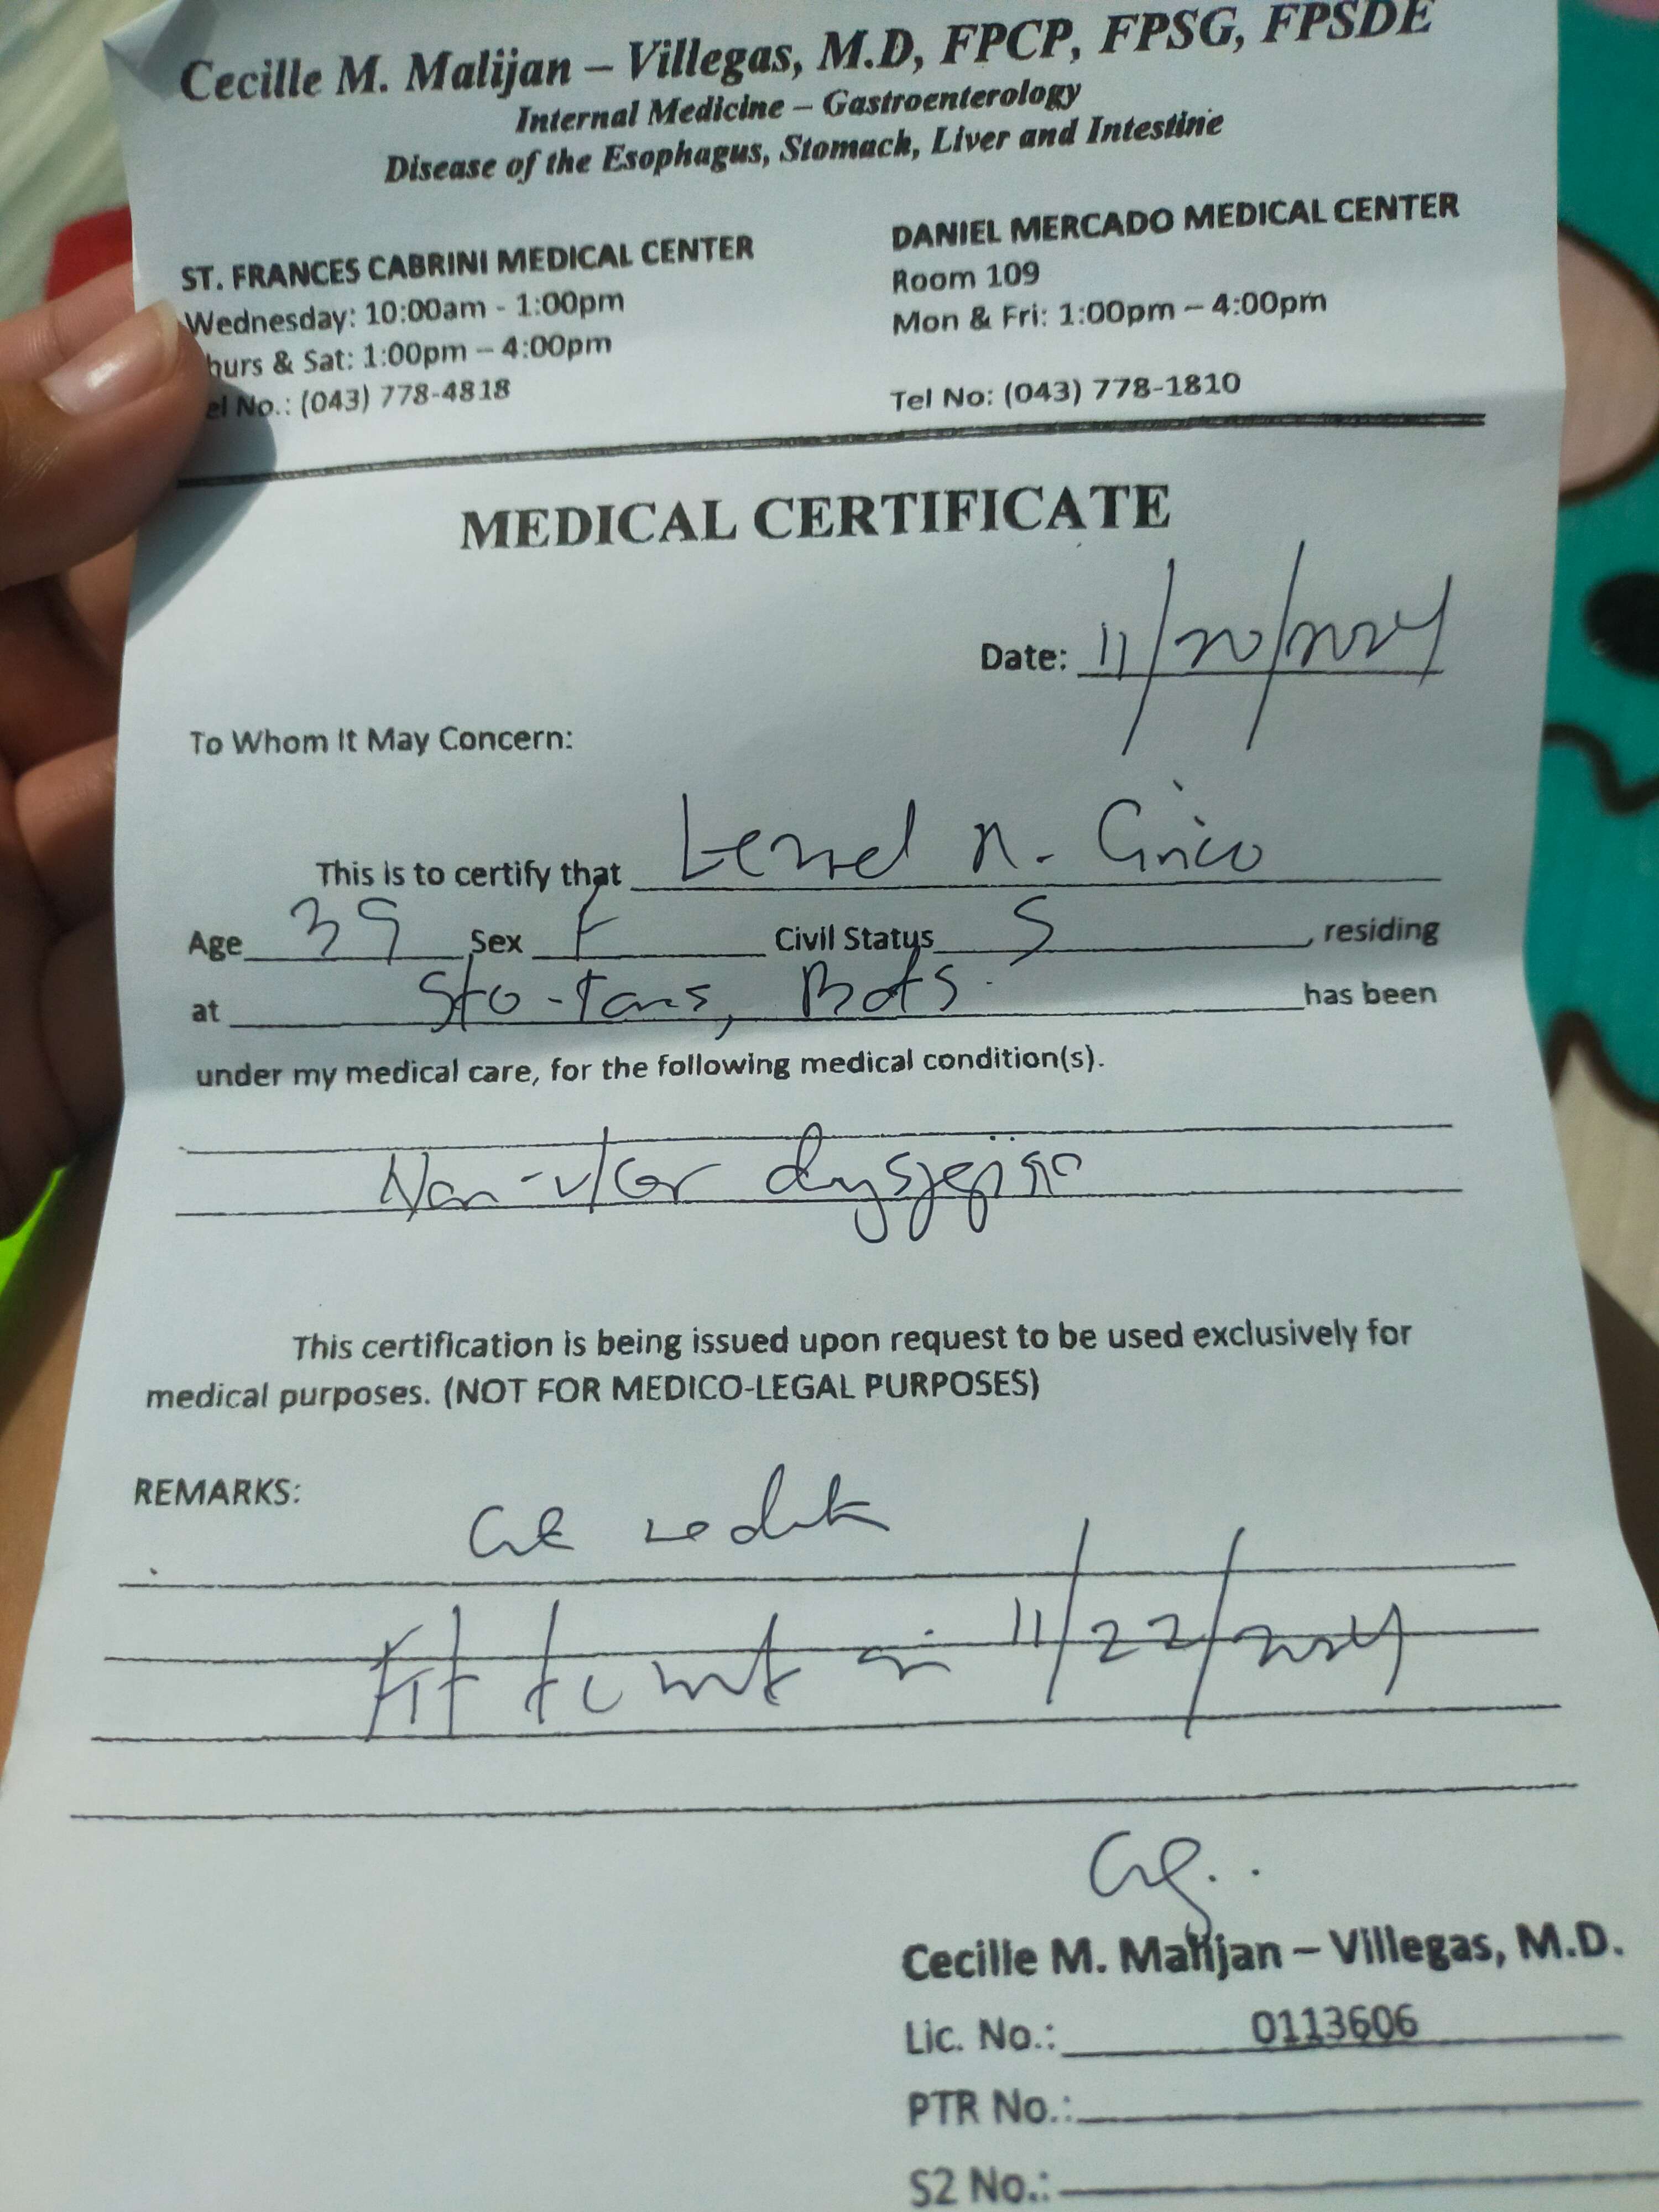 Cecille M. Malijan – Villegas, M.D, FPCP, FPSG, FPSDE
Internal Medicine – Gastroenterology
Disease of the Esophagus, Stomach, Liver and Intestine
ST. FRANCES CABRINI MEDICAL CENTER
Wednesday: 10:00am - 1:00pm
hurs & Sat: 1:00pm – 4:00pm
el No.: (043) 778-4818
DANIEL MERCADO MEDICAL CENTER
Room 109
Mon & Fri: 1:00pm – 4:00pm
Tel No: (043) 778-1810
MEDICAL CERTIFICATE
Date: 11/20/2024
To Whom It May Concern:
This is to certify that N.
Age 39 Sex F Civil Status S, residing
at Sto. Tomas, Bats. has been
under my medical care, for the following medical condition(s).
Non-ulcer dyspepsia
This certification is being issued upon request to be used exclusively for
medical purposes. (NOT FOR MEDICO-LEGAL PURPOSES)
REMARKS:
Fit to work on 11/22/2024
Cecille M. Malijan – Villegas, M.D.
Lic. No.: 0113606
PTR No.:
S2 No.: